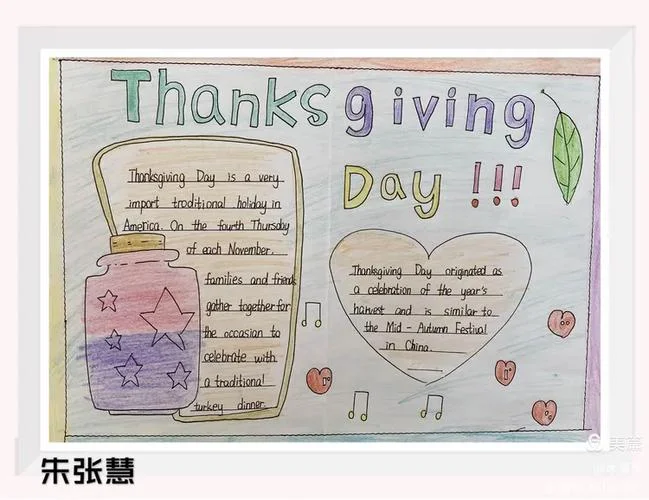 Thanksgiving
Day !!!
Thanksgiving Day is a very
import traditional holiday in
America. On the fourth Thursday
of each November.
families and friends
gather together for
the occasion to
celebrate with
a traditional
turkey dinner.
Thanksgiving Day originated as
a celebration of the year's
harvest and is similar to
the Mid - Autumn Festival
in China.
美篇
朱张慧